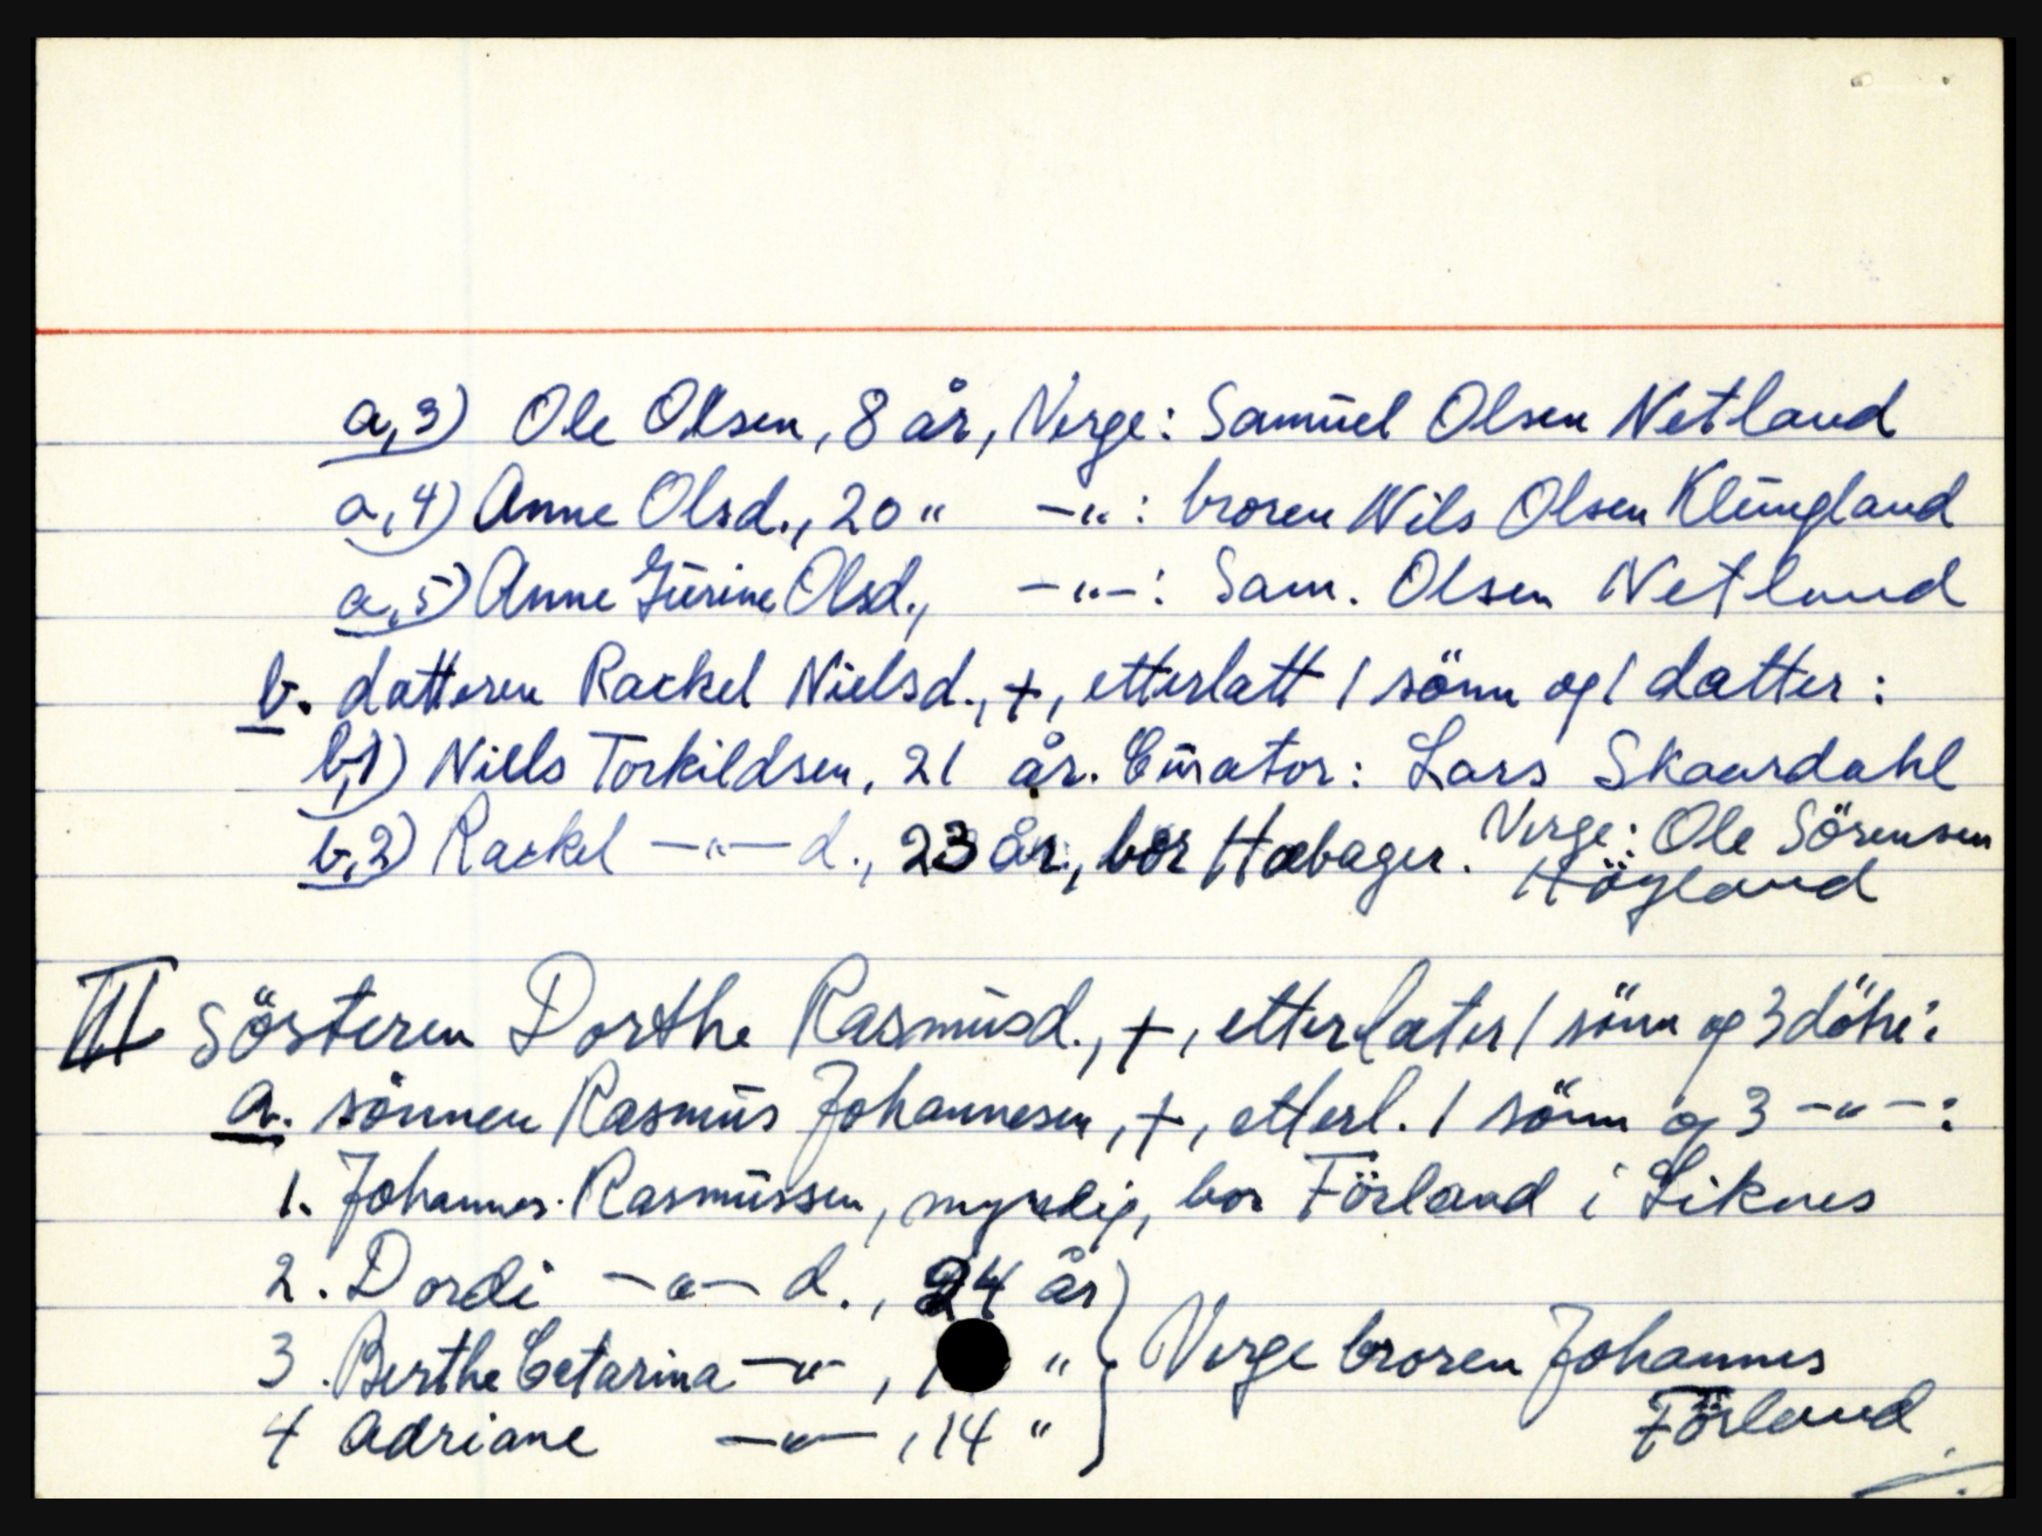 a,3) Ole Olsen, 8 år, Verge: Samuel Olsen Netland
a,4) Anne Olsd., 20 " -"-: broren Nils Olsen Klungland
a,5) Anne Gurine Olsd., -"-: Sam. Olsen Netland
b. datteren Rackel Nielsd., +, etterlatt 1 sönn og 1 datter:
b,1) Niels Torkildsen, 21 år. Curator: Lars Skaardahl
b,2) Rackel -"- d., 23 år, bor Hæbager. Verge: Ole Sörensen
Högland
III Sösteren Dorthe Rasmusd., +, etterlater 1 sönn og 3 dötre:
a. sönnen Rasmus Johannesen, +, etterl. 1 sönn og 3 -"-:
1. Johannes Rasmussen, myndig, bor Förland i Liknes
2. Dordi -"- d., 24 år
3. Berthe Catarina -"-, 1 " } Verge broren Johannes
Förland
4 Adriane -"-, 14 "